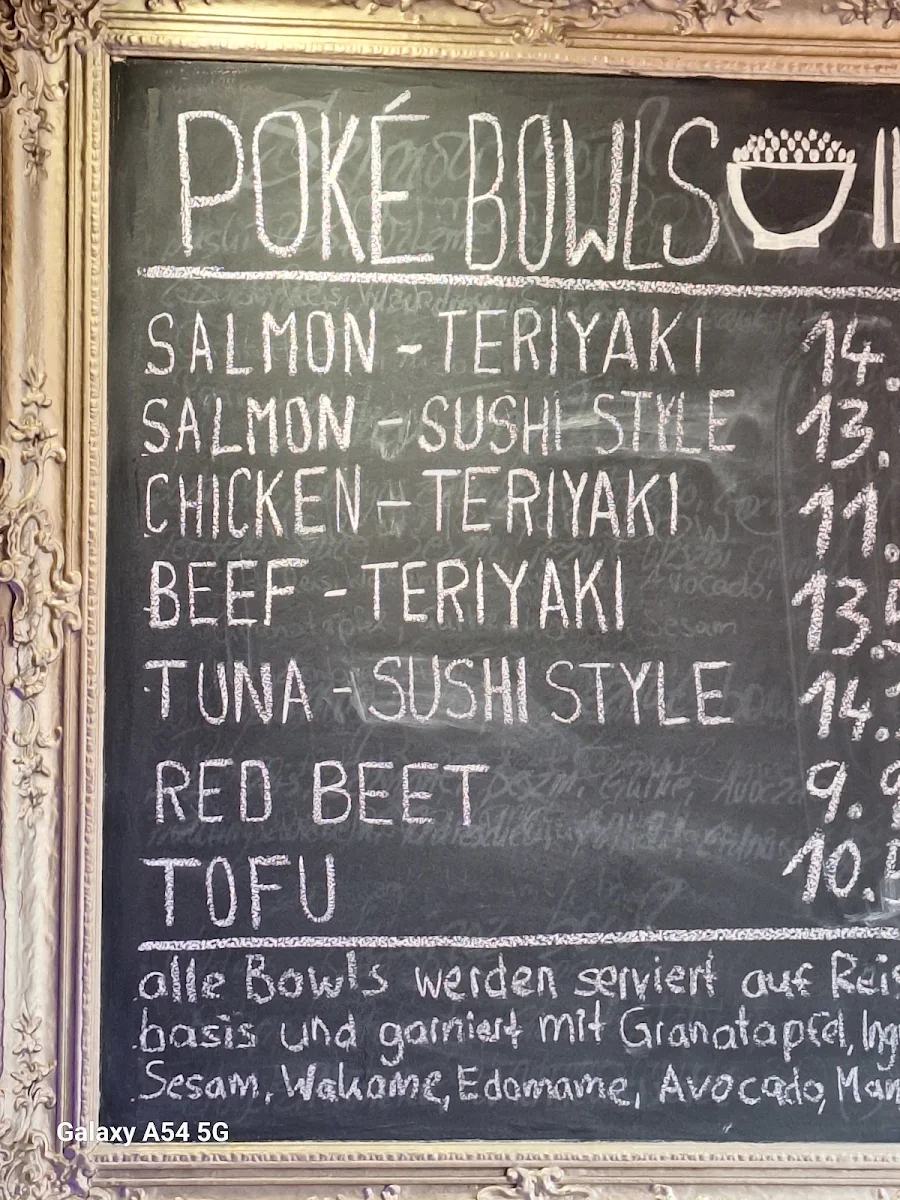 POKÉ BOWLS
SALMON - TERIYAKI 14.
SALMON - SUSHI STYLE 13.
CHICKEN - TERIYAKI 11.
BEEF - TERIYAKI 13.5
TUNA - SUSHI STYLE 14.
RED BEET 9.9
TOFU 10.5
alle Bowls werden serviert auf Reis
basis und garniert mit Granatapfel, Ing
Sesam, Wakame, Edamame, Avocado, Man
Galaxy A54 5G